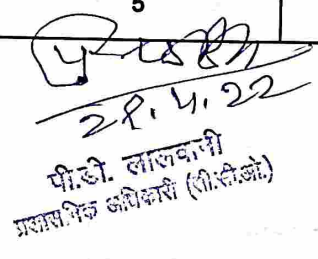 5
28.4.22
पी.डी. लालवानी
प्रशासनिक अधिकारी (सी.सी.ओ.)